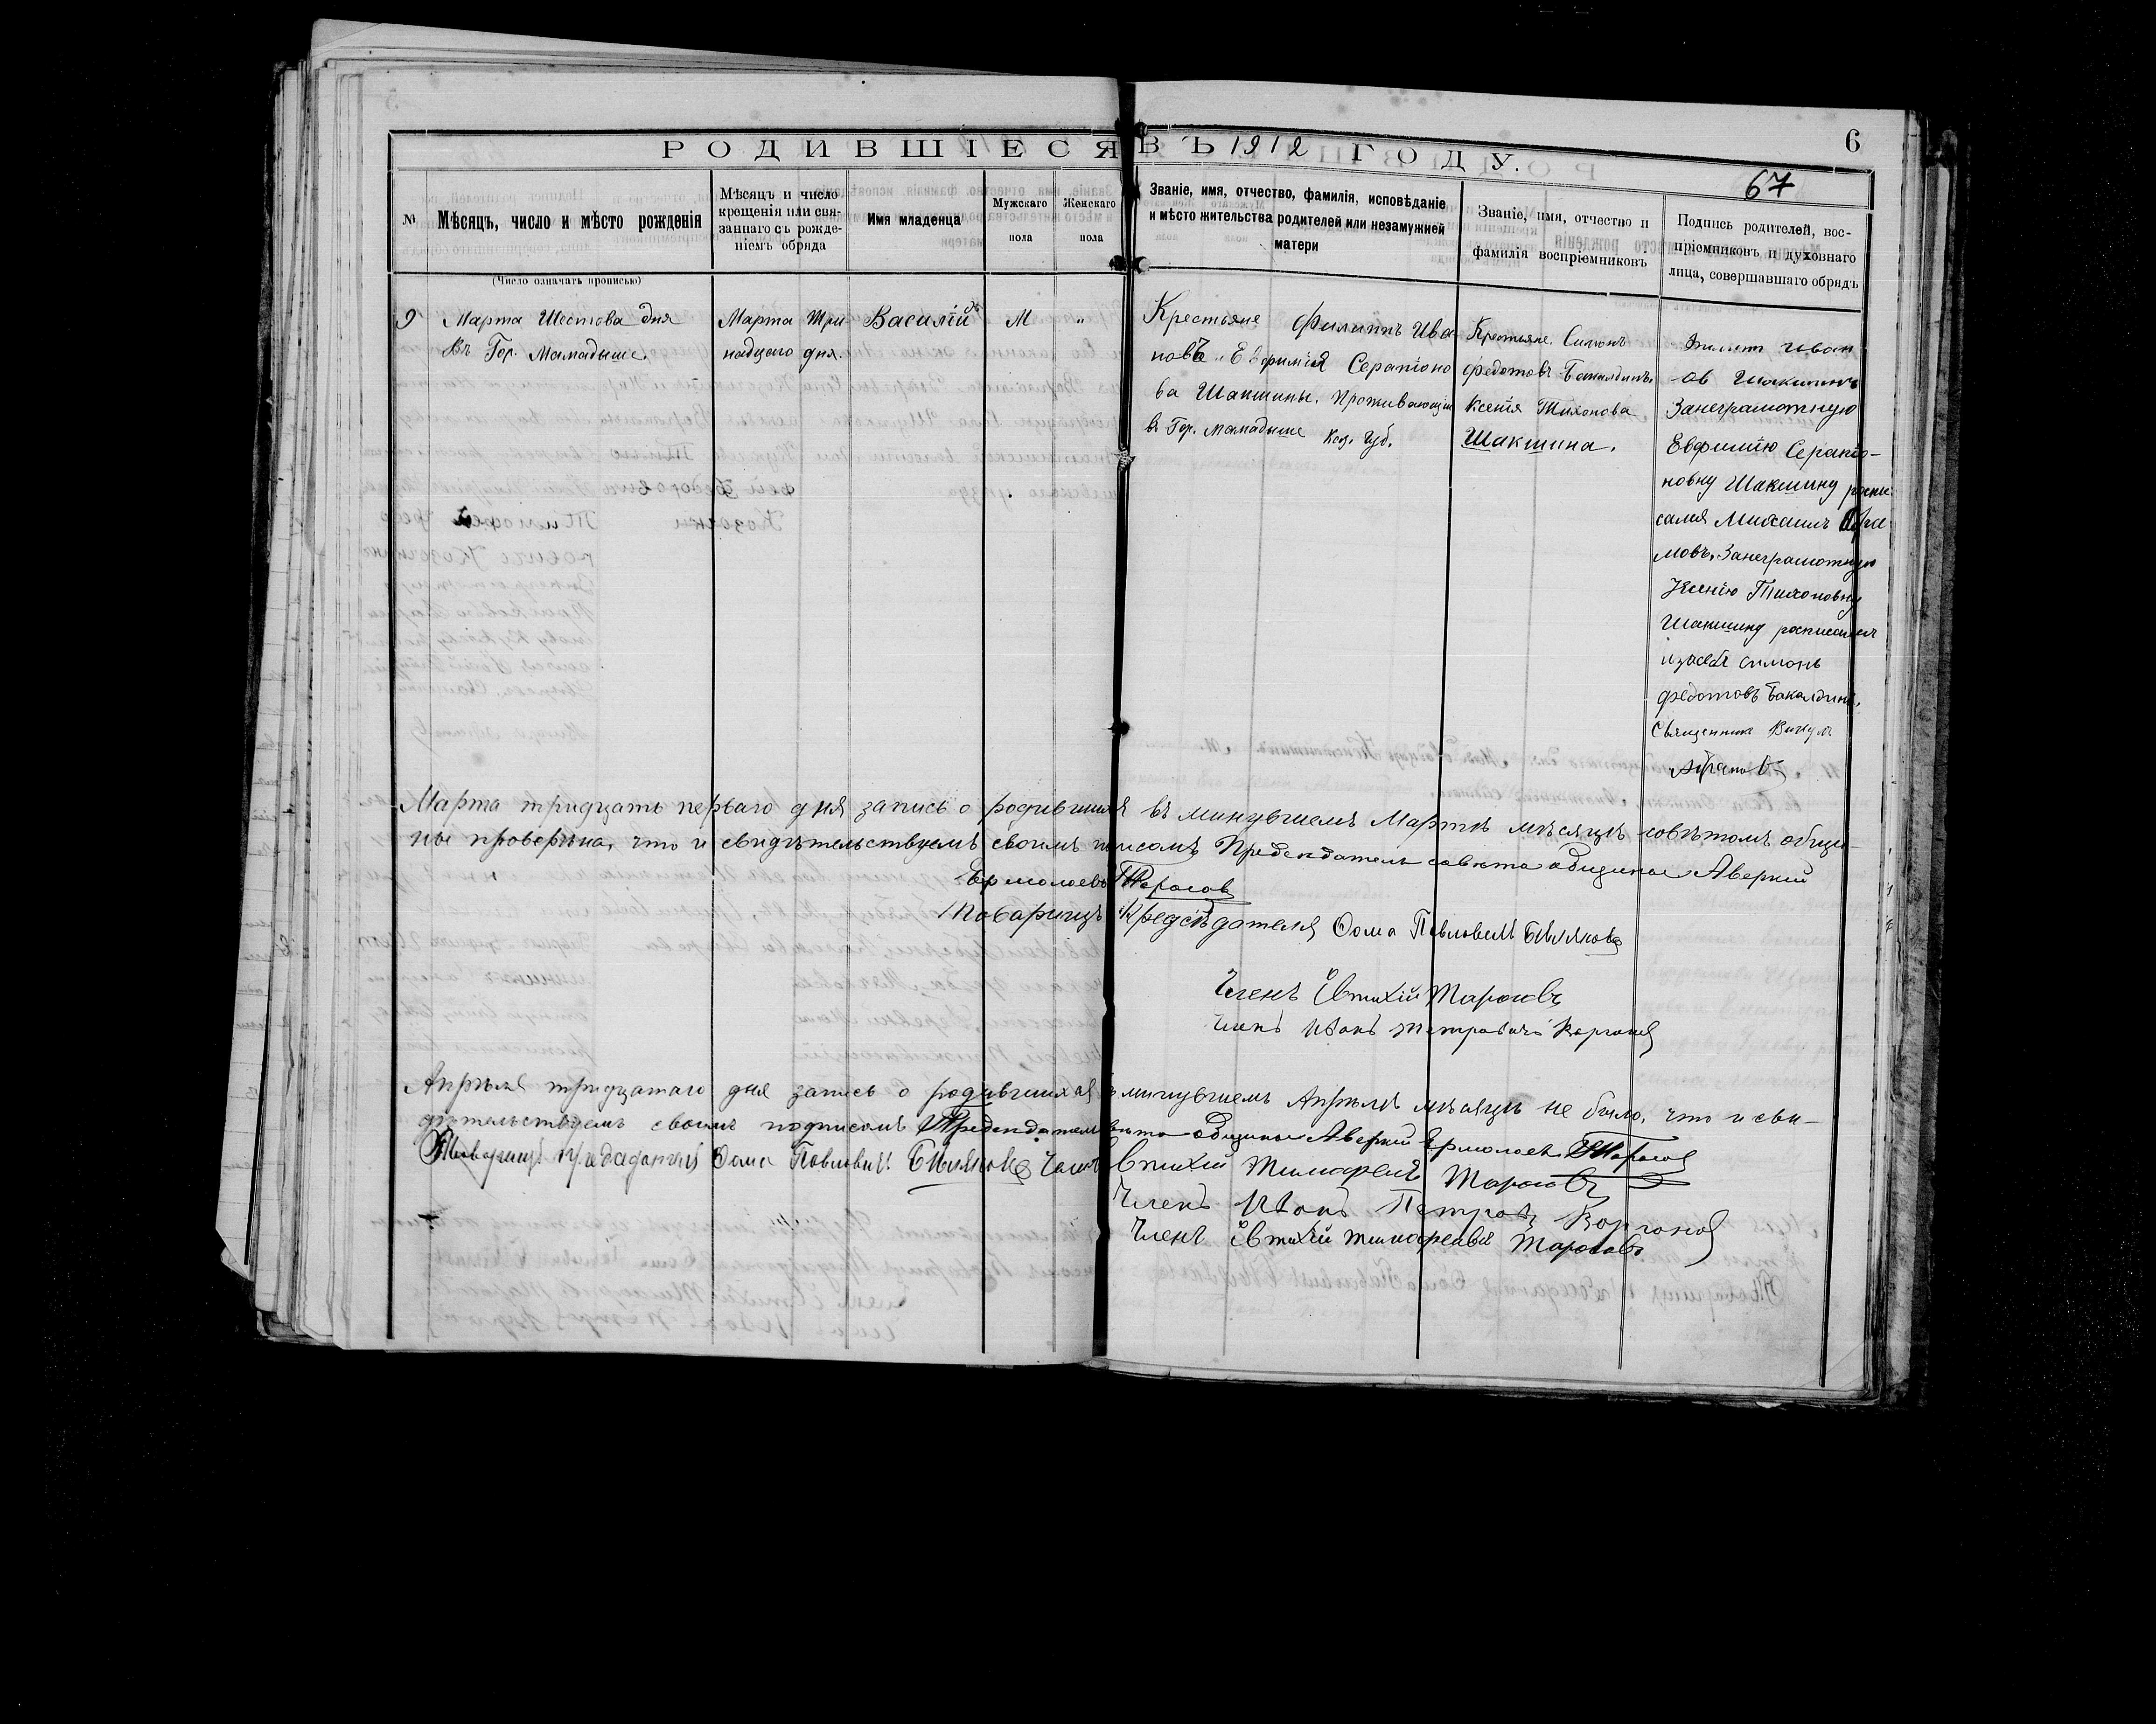 6
РОДИВШІЕСЯ ВЪ 1912 ГОДУ.
67
№
Мѣсяцъ, число и мѣсто рожденія
Мѣсяцъ и число
крещенія или свя-
заннаго съ рожде-
ніемъ обряда
Имя младенца
Мужскаго
пола
Женскаго
пола
Званіе, имя, отчество, фамилія, исповѣданіе
и мѣсто жительства родителей или незамужней
матери
Званіе, имя, отчество и
фамилія воспріемниковъ
Подпись родителей, вос-
пріемниковъ и духовнаго
лица, совершавшаго обрядъ
(Число означать прописью)
9
Марта Шестова дня
Въ Гор. Мамадыше.
Марта три-
надцаго дня.
Василій
М
"
Крестьяне Филиппъ Ива
новъ и Евфимія Серапіоно
ва Шакшины, проживающіи
въ Гор. Мамадыше Каз. Губ.
Крестьяне Симонъ
Федотовъ Бакалдинъ,
Ксенія Тихонова
Шакшина.
Филипп Иван
ов Шакшинъ
Занеграмотную
Евфимію Серапіо-
новну Шакшину роспи
сался Михаилъ
мовъ, Занеграмотную
Ксенію Тихоновну
Шакшину росписался
изасебя симонъ
федотовъ Бакалдинъ,
Священник
Марта тридцать перваго дня запись о родившихся въ минувшемъ Мартѣ мѣсяцѣ совѣтомъ общи-
ны проверѣна, что и свидѣтельствуемъ своимъ Предсѣдатель совѣта общины Аверкій
Ермолаевъ Тарасов
Товарищъ Предсѣдателя Ѳома Павловичъ
Членъ Евтихій Тарасовъ
Членъ Иванъ Петровичъ
Апрѣля тридцатаго дня запись о родившихся в минувшемъ Апрѣлѣ мѣсяцѣ не было, что и сви-
дѣтельствуемъ своимъ подписомъ Предсѣдатель совѣта общины Аверкій Ермолаев Тарасов
Товарищъ Предсѣдателя Ѳома Павловичъ Членъ Евтихій Тимофеевъ Тарасовъ
Членъ Иванъ Петровъ
Членъ Евтихій Тимофеевъ Тарасовъ